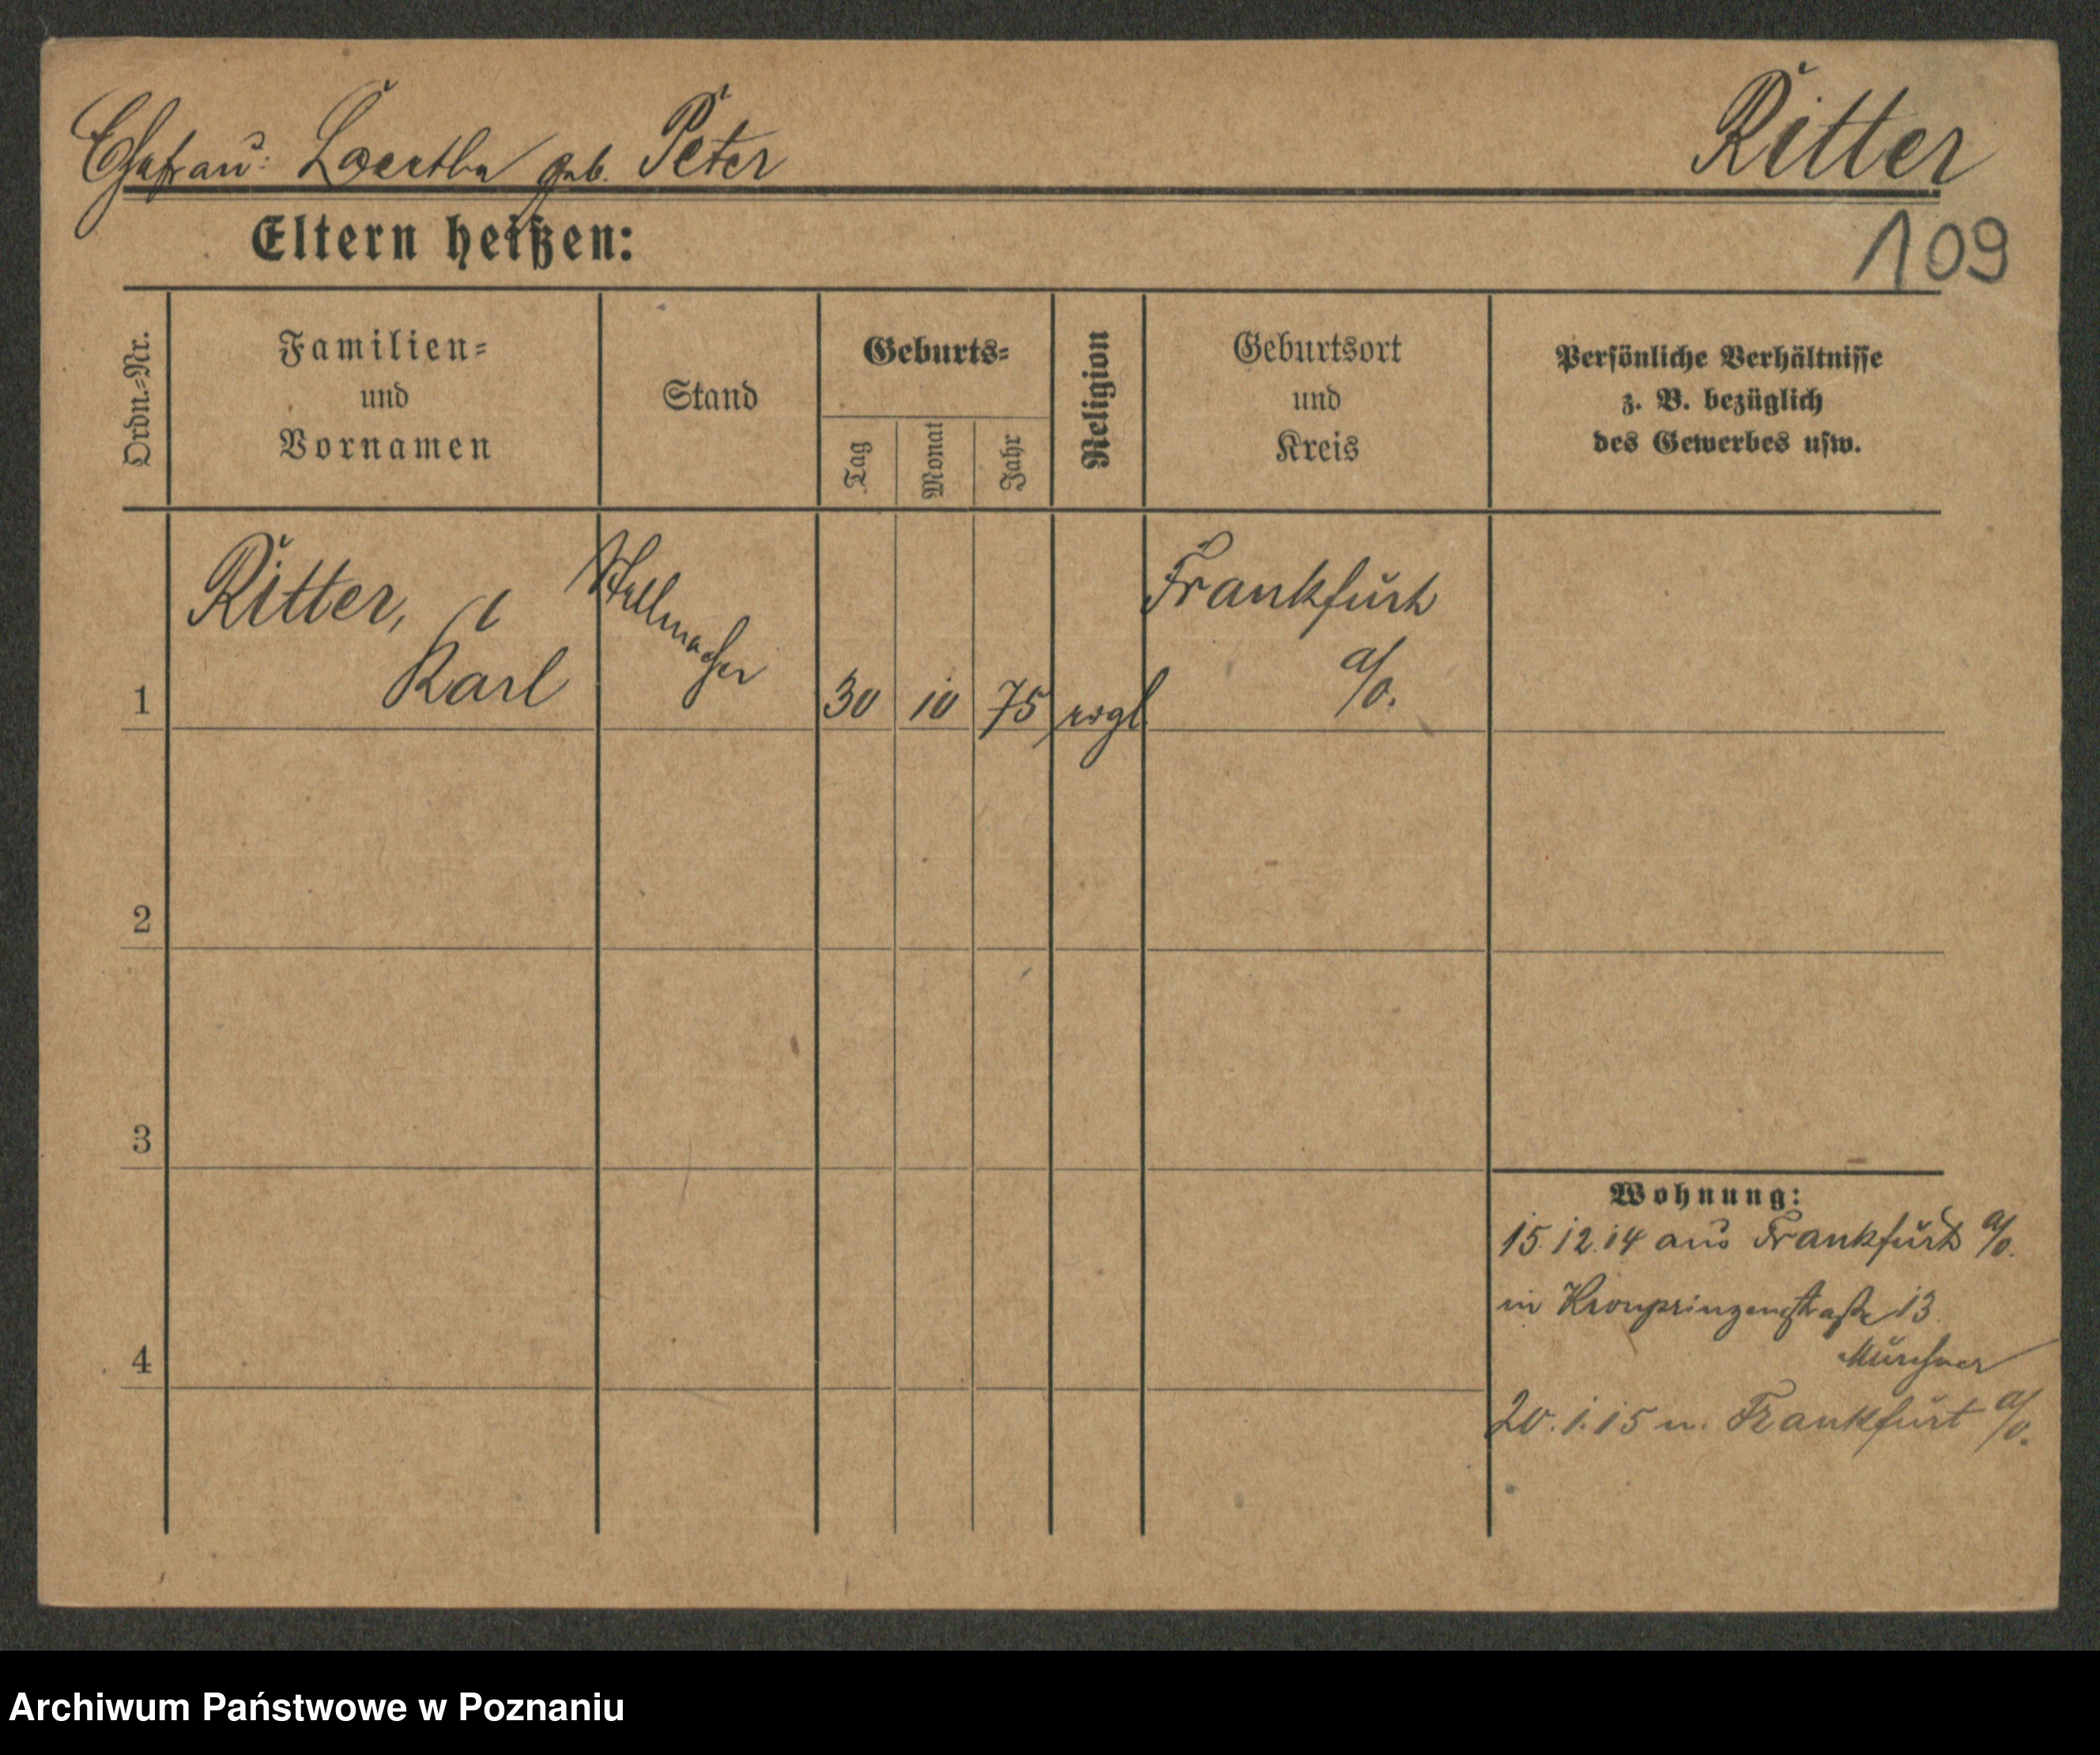 Ehefrau: Baertha geb. Peter
Ritter
Eltern heißen:
109
Ordn.=Nr.
Familien=
und
Vornamen
Stand
Geburts=
Tag
Monat
Jahr
Religion
Geburtsort
und
Kreis
Persönliche Verhältnisse
z. B. bezüglich
des Gewerbes usw.
1
Ritter,
Karl
Stellmacher
30
10
75
evgl.
Frankfurt
a/O.
2
3
4
Wohnung:
15.12.14 aus Frankfurt a/O.
in Kronprinzenstraße 13
20.1.15 n. Frankfurt a/O.
Archiwum Państwowe w Poznaniu